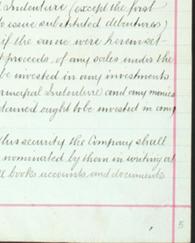 Indenture (except the first
to issue substituted debentures)
if the same were herein set
t proceeds of any sales under the
be invested in any investments
Principal Indenture) and any monies
deemed ought to be invested in any
this security the Company shall
nominated by them in writing at
ll books accounts and documents